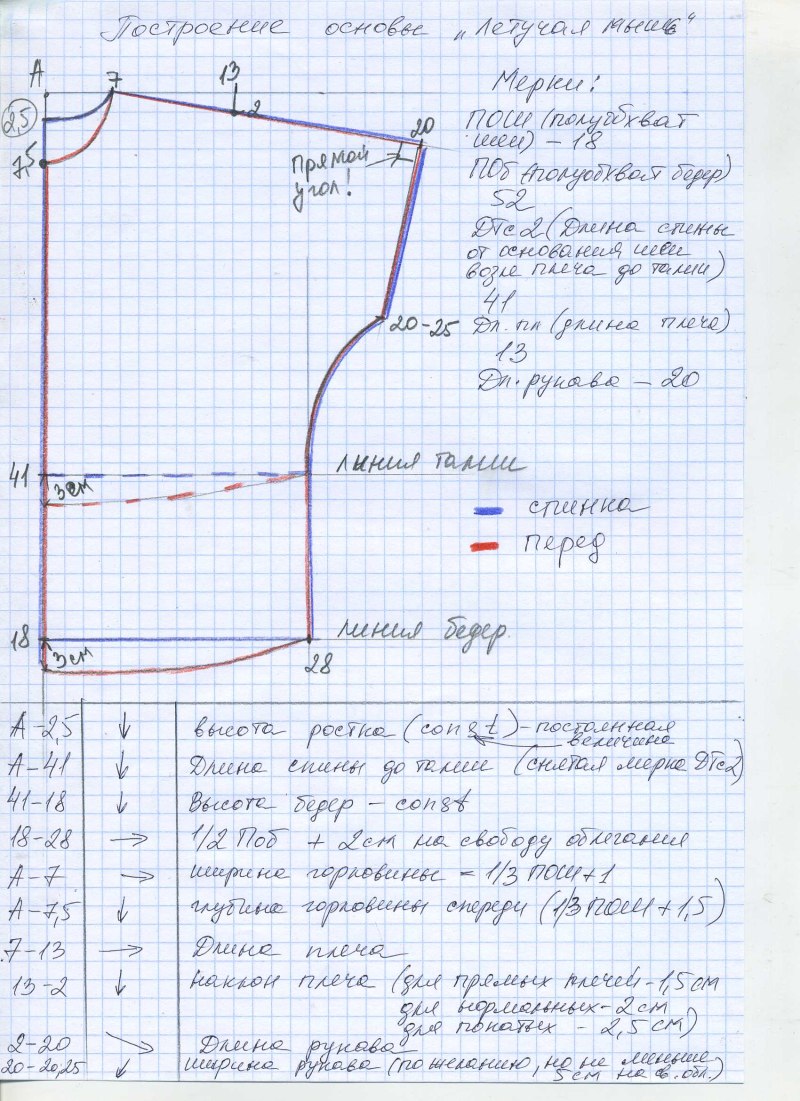 Построение основы „Летучая мышь"
Мерки:
ПОШ (полуобхват
шеи) – 18
ПОб (полуобхват бедер)
52
ДТс2 (Длина спины
от основания шеи
возле плеча до талии)
41
Дл. пл (длина плеча)
13
Дл. рукава – 20
А
7
13
2
20
2,5
7,5
прямой
угол!
20-25
41
3см
линия талии
спинка
перед
18
3см
28
линия бедер.
А-2,5 ↓ высота ростка (const) - постоянная
величина
А-41 ↓ Длина спины до талии (снятая мерка ДТс2)
41-18 ↓ Высота бедер – const
18-28 → 1/2 Поб + 2см на свободу облегания
А-7 → ширина горловины = 1/3 ПОШ+1
А-7,5 ↓ глубина горловины спереди (1/3 ПОШ + 1,5)
7-13 → Длина плеча
13-2 ↓ наклон плеча (для прямых плечей-1,5см
для нормальных-2см
для покатых - 2,5см)
2-20 ↘ Длина рукава
20-20,25 ↓ ширина рукава (по желанию, но не меньше
5см на св. обл.)